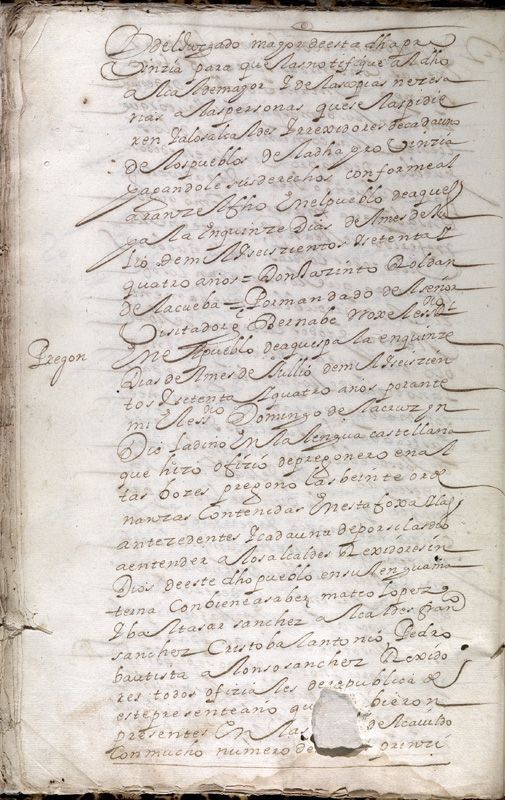 del Juzgado mayor de esta dha pro
binzia para que las notifique al dho
Alcalde mayor I de las copias neresa
rias a las personas que se las pidie
ren I a los alcaldes I rrexidores de cada uno
de los pueblos de la dha probinzia
pagandole sus derechos conforme al
aranzel fho En el pueblo de aques
pala En quinze Dias del mes de Ju
lio de mil seiszientos I setenta I
quatro años = Don Jazinto Roldan
de la cueba = Por mandado del señor
Visitador = Bernabe Roxel ess.no
Pregon
En el pueblo de aquespala en quinze
Dias del mes de Jullio de mil seiszien
tos I setenta I quatro años por ante
mi el ess.no Domingo de la cruz yn
Dio ladino En la lengua castellana
que hizo ofizio de pregonero en al
tas bozes pregono las beinte orde
nanzas contenidas En esta foxa I las
antezedentes I cada una de por si las dio
a entender a los alcaldes Rexidores in
Dios de este dho pueblo en su lengua ma
terna conbiene a saber mateo lopez
I baltasar sanchez Alcaldes fran.co
sanchez Cristobal antonio Pedro
bautista Alonso sanchez Rexido
res todos ofiziales de republica de
este presente año qu bieron
presentes En las de cavildo
con mucho numero de prinzi